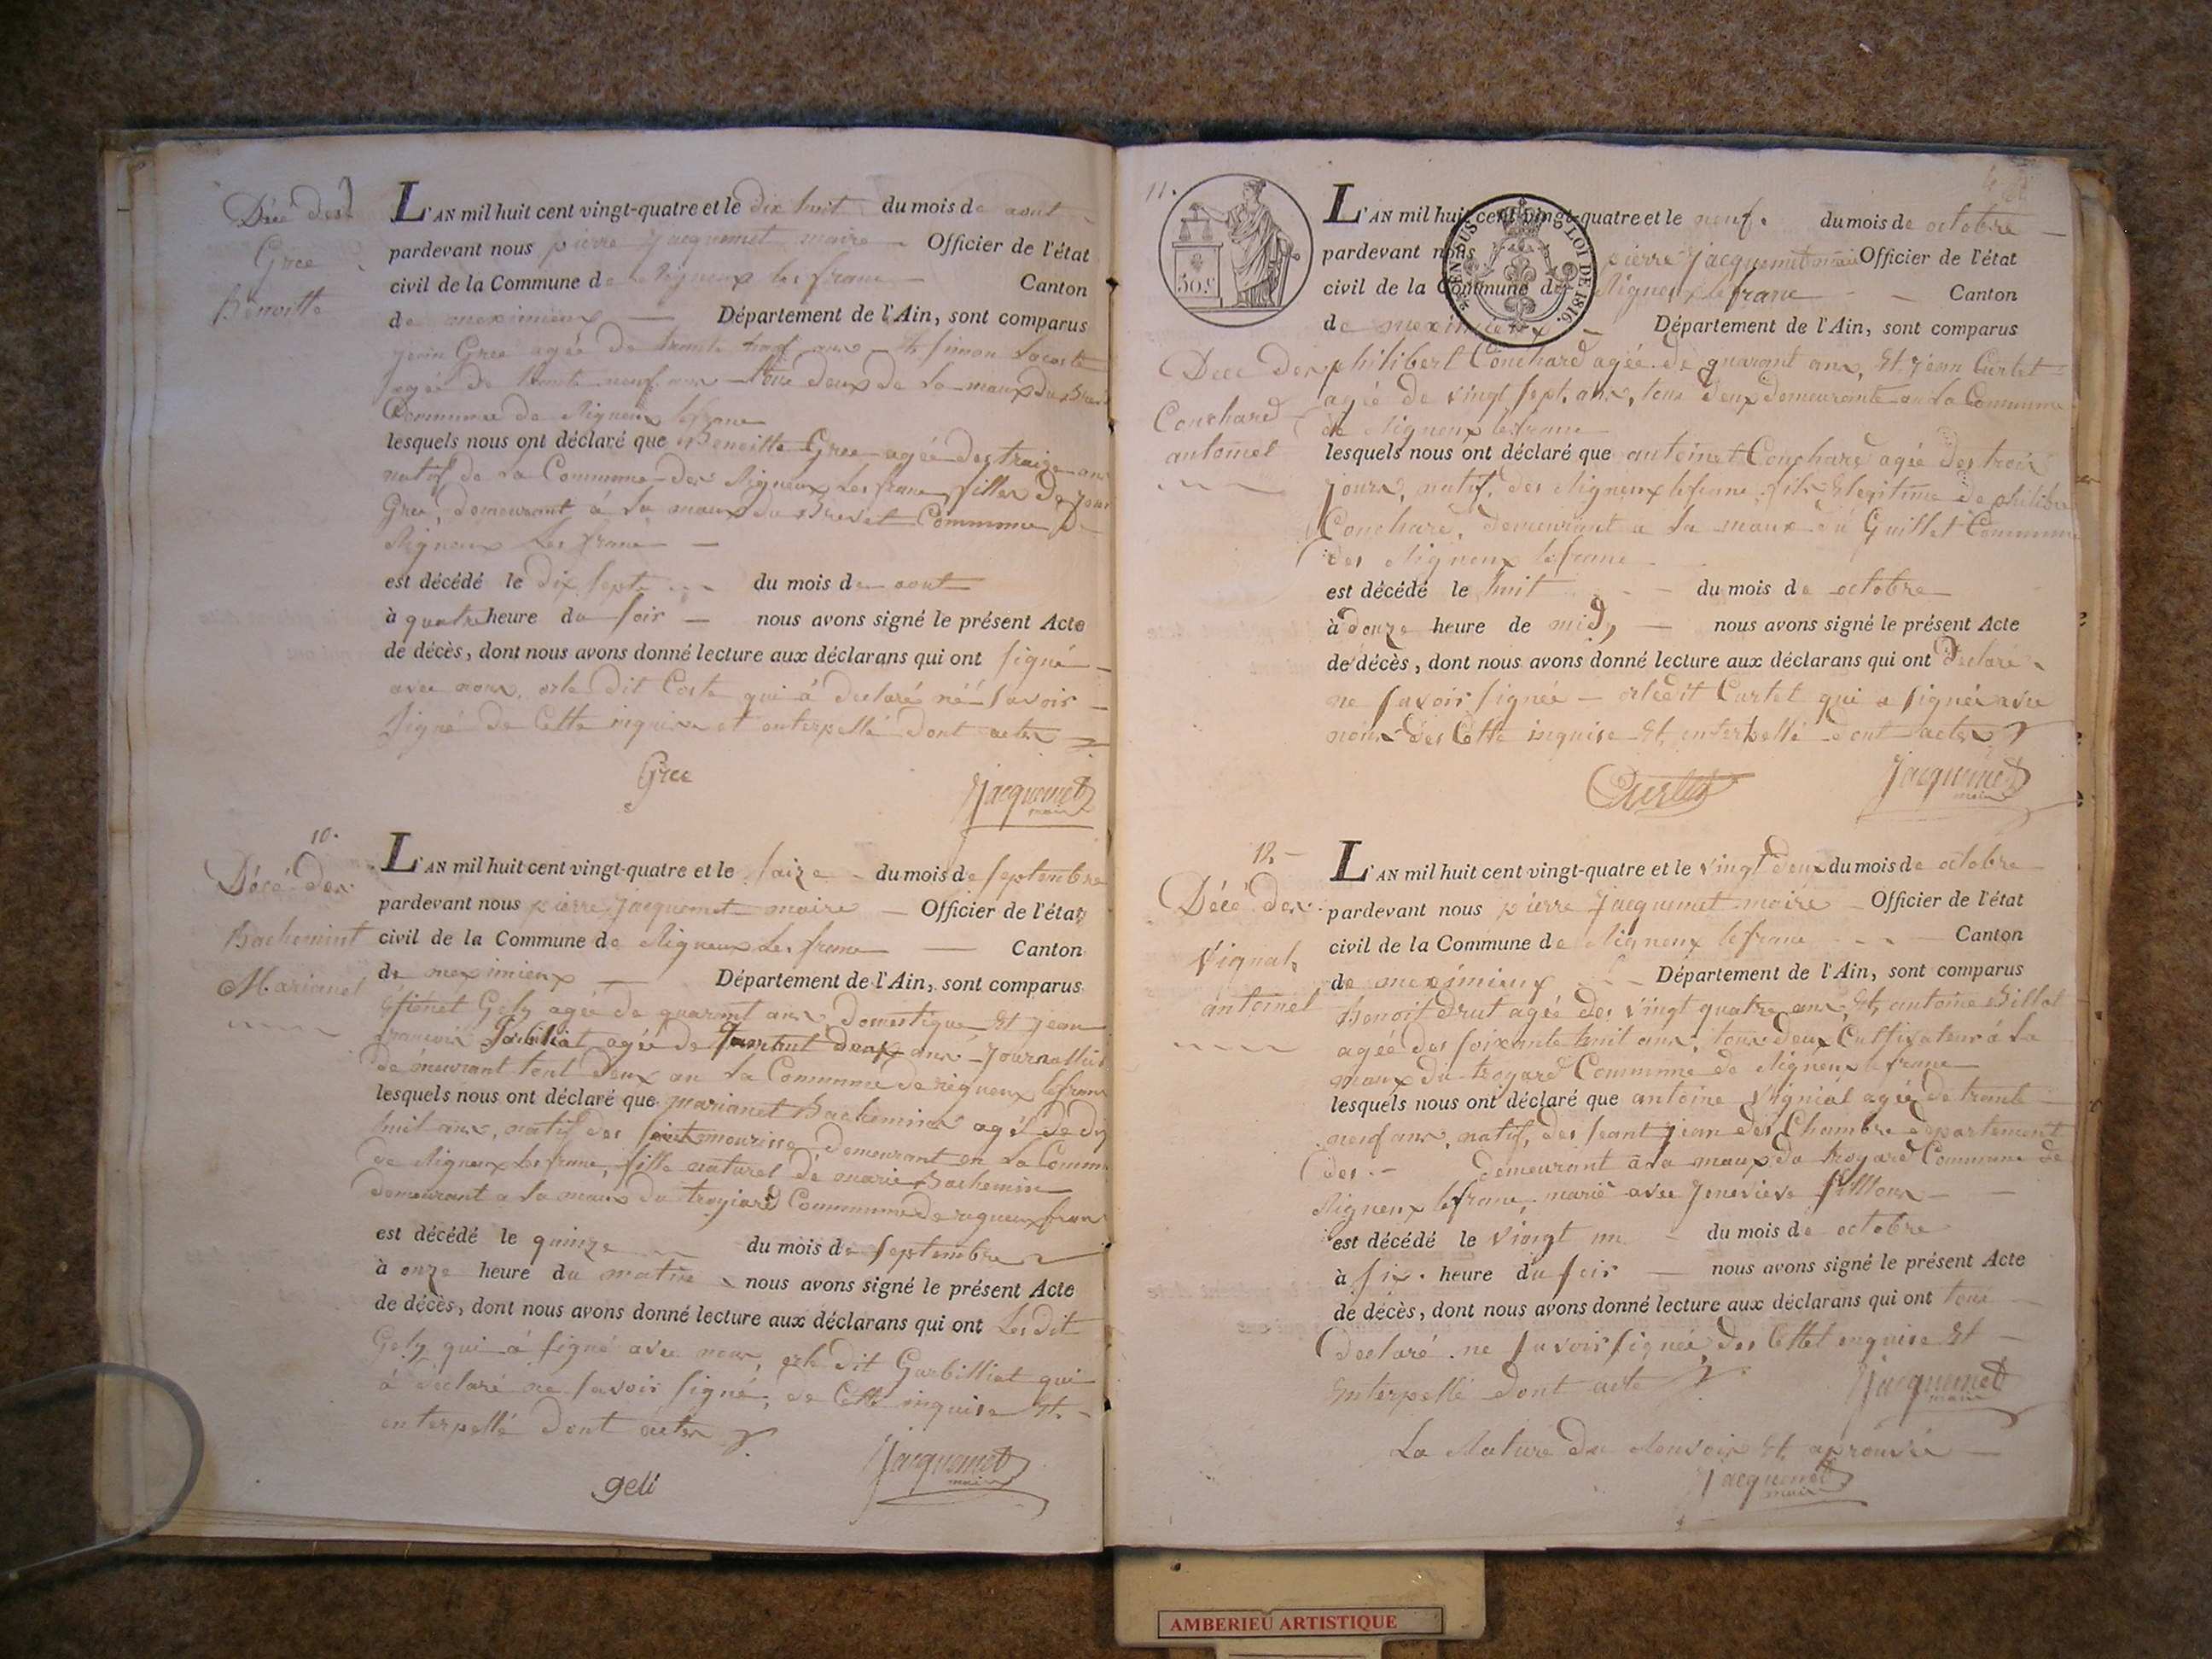 Décé des
Gree
Benoitte
L'AN mil huit cent vingt-quatre et le dix huit du mois de aout
pardevant nous pierre Jacquemet maire Officier de l'état
civil de la Commune de Rigneux les franc Canton
de meximieux Département de l'Ain, sont comparus
Gree agée de trante neuf ans et simon Lacoste
agée de trante neuf ans tous deux de La maux du
Commune de Rigneux lefranc
lesquels nous ont déclaré que Benoitte Gree agée des traize ans
natif de La Commune des Rigneux Les franc filles De
Gree, demeurant à La maux du Brevet Commune de
Rigneux Les franc
est décédé le dix septe du mois de aout
à quatre heure du soir nous avons signé le présent Acte
de décès, dont nous avons donné lecture aux déclarans qui ont signé
avec nous, orle dit Coste qui à declaré né savoir
signé de Cette inquise et enterpellé dont actes
Gree
Jacquemet
maire
10.
Décé des
Bachemint
Marianet
L'AN mil huit cent vingt-quatre et le saize du mois de septembre
pardevant nous pierre Jacquemet maire Officier de l'état
civil de la Commune de Rigneux Les franc Canton
de meximieux Département de l'Ain, sont comparus
étienet Gely agée de quarant ans, Domestique Et jean
françois Garbiliat agée de deux ans Journallier
demeurant tout Deux an La Commune de rigneux lefranc
lesquels nous ont déclaré que marianet Bachemint agée de dix
huit ans, natif des saint mourisse demeurant en La Commune
de Rigneux Les franc, fille naturel de marie Bachemin
demeurant a La maux du troyiard Commune de rigneux franc
est décédé le quinze du mois de septembre
à onze heure du matin nous avons signé le présent Acte
de décès, dont nous avons donné lecture aux déclarans qui ont Les dit
Gely qui à signé avec nous, orle dit Garbilliat qui
à declaré ne savoir signé, de Cette inquise Et
enterpellé dont actes
geli
Jacquemet
maire
11.
50.c
EN SUS LOI DE 1816.
L'AN mil huit cent vingt-quatre et le neuf du mois de octobre
pardevant nous pierre Jacquemet maire Officier de l'état
civil de la Commune de Rigneux lefranc Canton
de meximieux Département de l'Ain, sont comparus
Décé des
Conchard
antoinet
philibert Conchard agée de quarant ans, Et jean Curtet
agée de vingt sept ans, tous deux demeurante en La Commune
de Rigneux lesfranc
lesquels nous ont déclaré que antoinet Conchard agée des trois
Jours, natif des Rigneux lefranc fils Elegitime de philibert
Conchard, demeurant a La maux du Guillet Commune
des Rigneux lefranc
est décédé le huit du mois de octobre
à douze heure de midy nous avons signé le présent Acte
de décès, dont nous avons donné lecture aux déclarans qui ont declaré
ne savoir signée orledit Curtet qui a signée avec
nous des Cette inquise Et enterpellé dont actes
Curtet
Jacquemet
maire
12.
Décé des
Vignal
antoinet
L'AN mil huit cent vingt-quatre et le vingt deux du mois de octobre
pardevant nous pierre Jacquemet maire Officier de l'état
civil de la Commune de Rigneux lefranc Canton
de meximieux Département de l'Ain, sont comparus
Benoit Drut agée des vingt quatre ans Et, antoine Billol
agée des soixante huit ans, tous deux Cultivateur à La
maux du troyard Commune de Rigneux lefranc
lesquels nous ont déclaré que antoine Vignial agée de trante
neuf ans, natif, des seant jean des Chambre departement
des demeurant a La maux du troyard Commune de
Rigneux lefranc, marié avec Jenevieve Billion
est décédé le vingt un du mois de octobre
à six heure du soir nous avons signé le présent Acte
de décès, dont nous avons donné lecture aux déclarans qui ont tous
declaré ne savoir signée, des Cettet enquise Et
Enterpellé dont acte
Jacquemet
maire
La Rature du Et aprouvée
Jacquemet
maire
AMBERIEU ARTISTIQUE